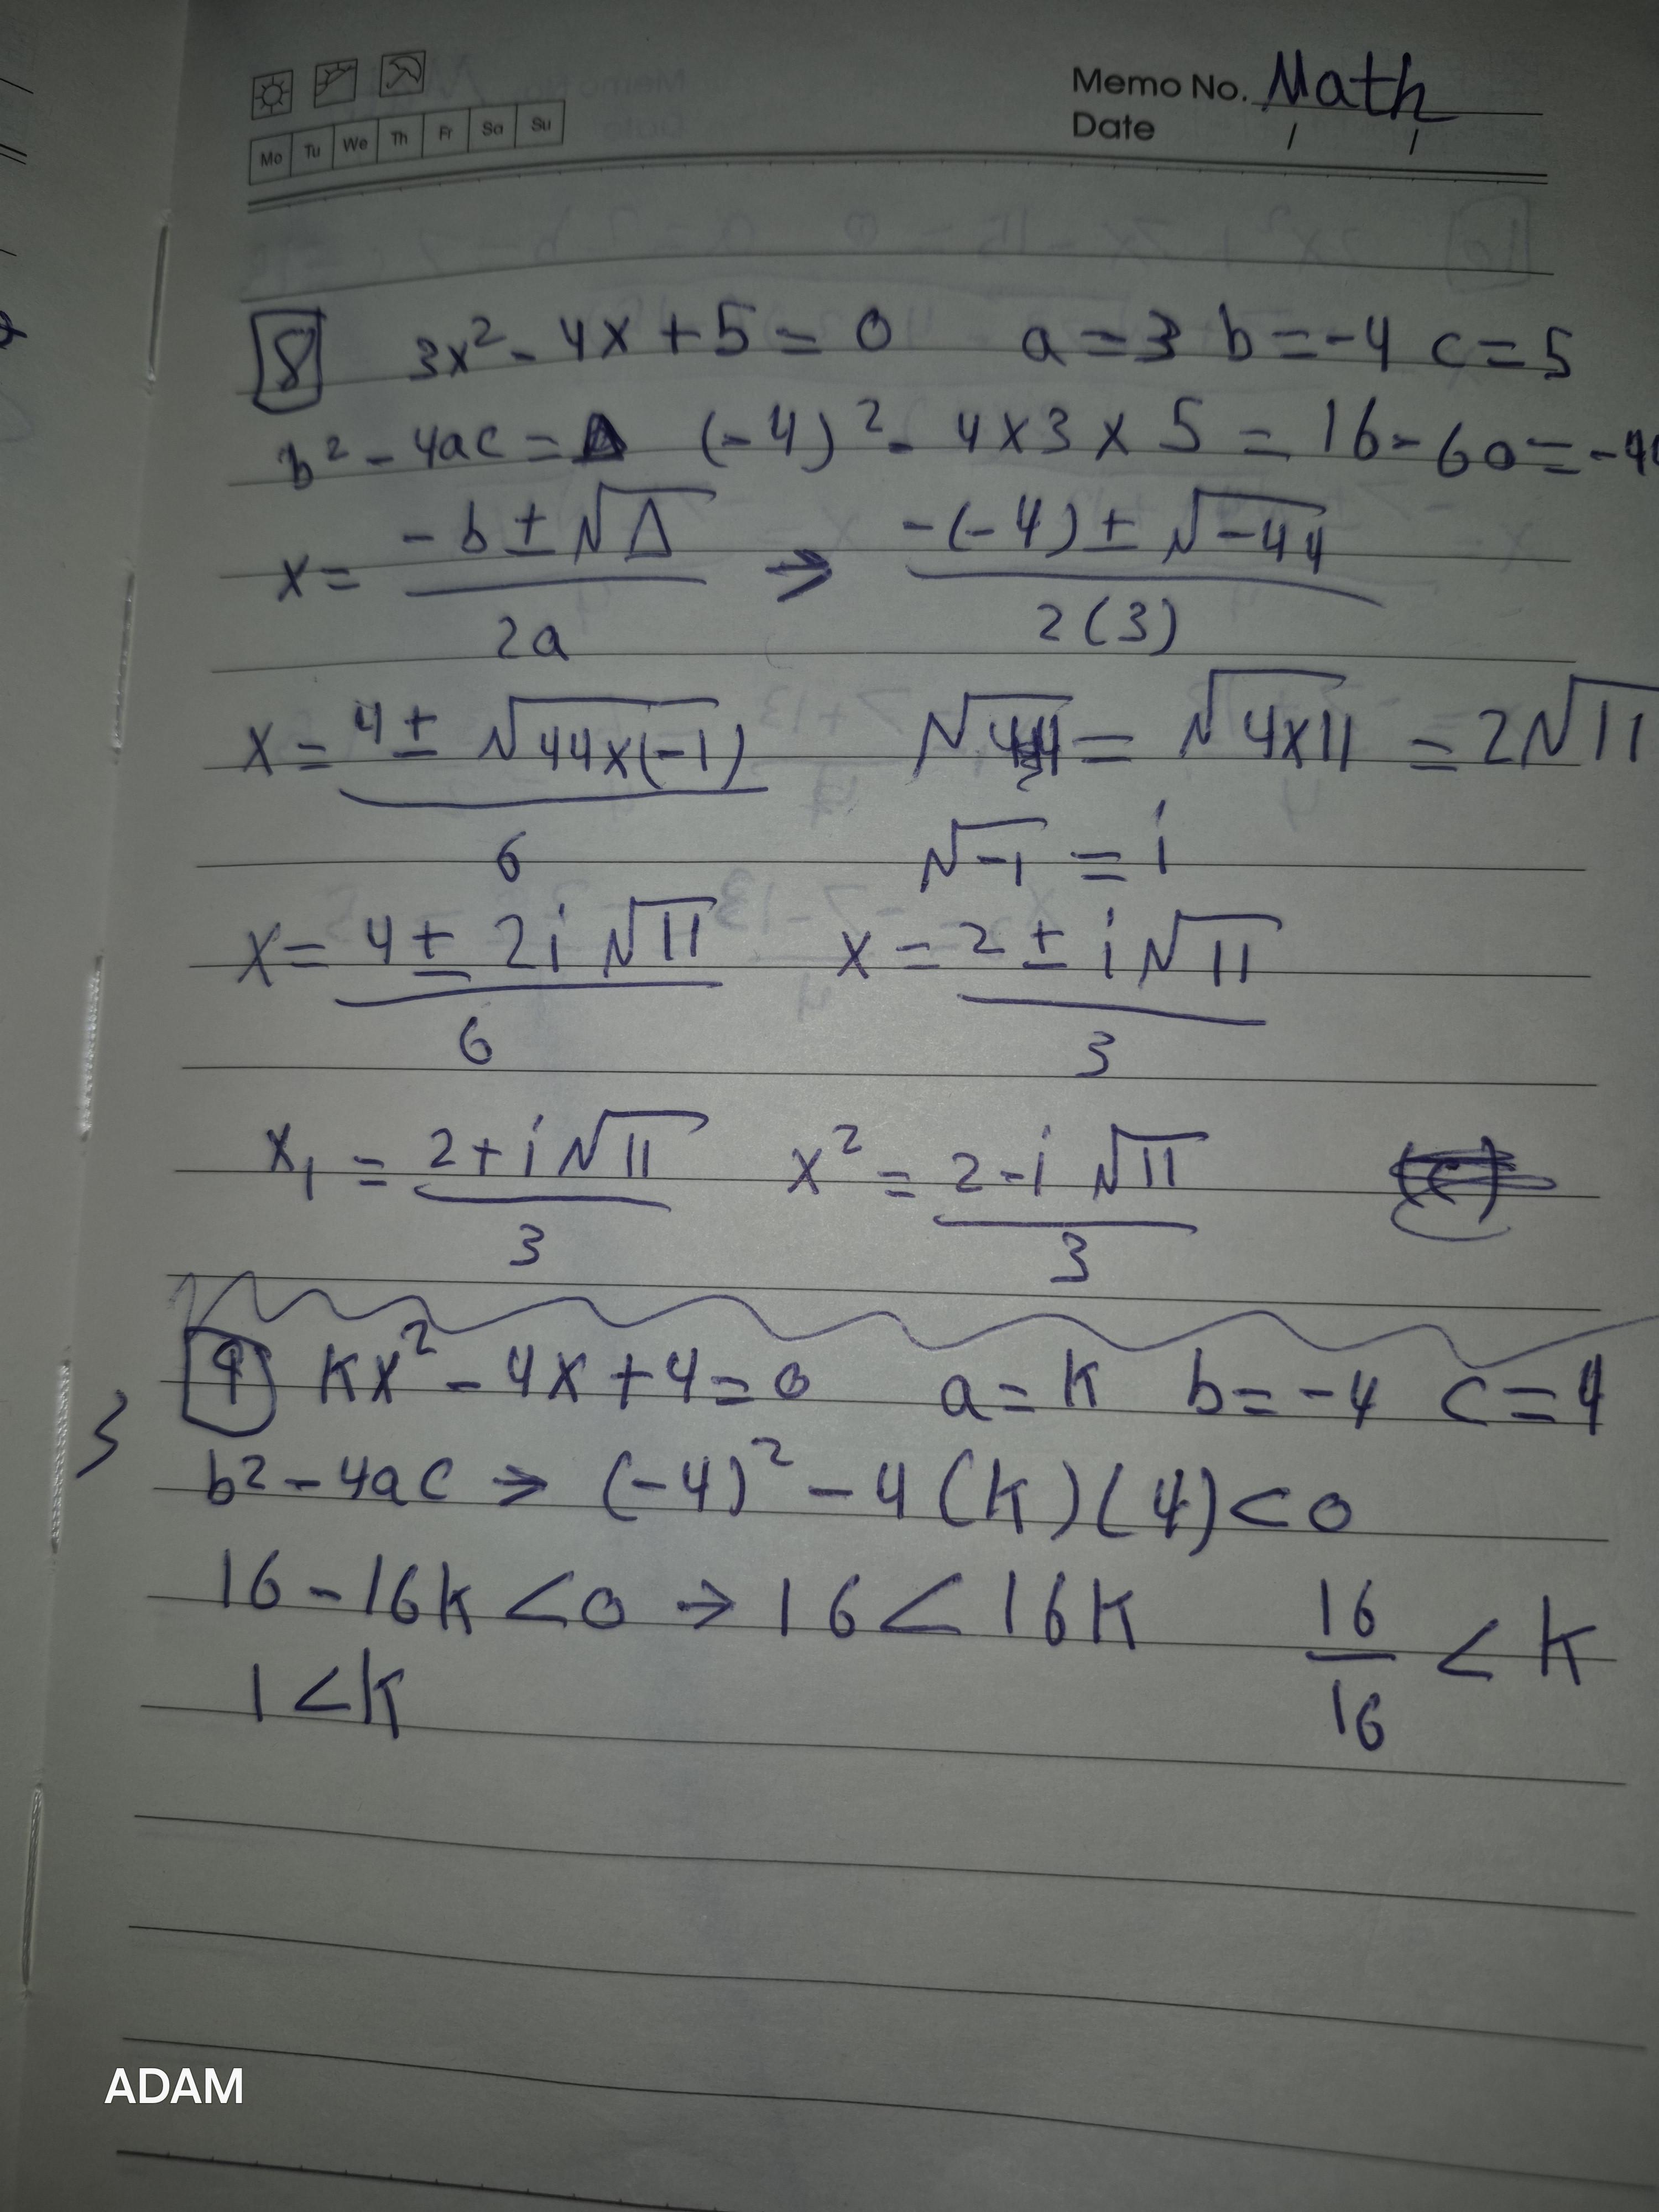 Memo No. Math
Mo Tu We Th Fr Sa Su
Date / /
8 3x² - 4x + 5 = 0 a = 3 b = -4 c = 5
b² - 4ac = Δ (-4)² - 4 x 3 x 5 = 16 - 60 = -4
x = -b ± √Δ / 2a → -(-4) ± √-44 / 2(3)
x = 4 ± √44x(-1) / 6 √44 = √4x11 = 2√11
√-1 = i
x = 4 ± 2i√11 / 6 x = 2 ± i√11 / 3
x₁ = 2 + i√11 / 3 x² = 2 - i√11 / 3
9 kx² - 4x + 4 = 0 a = k b = -4 c = 4
b² - 4ac → (-4)² - 4(k)(4) < 0
16 - 16k < 0 → 16 < 16k 16/16 < k
1 < k
ADAM